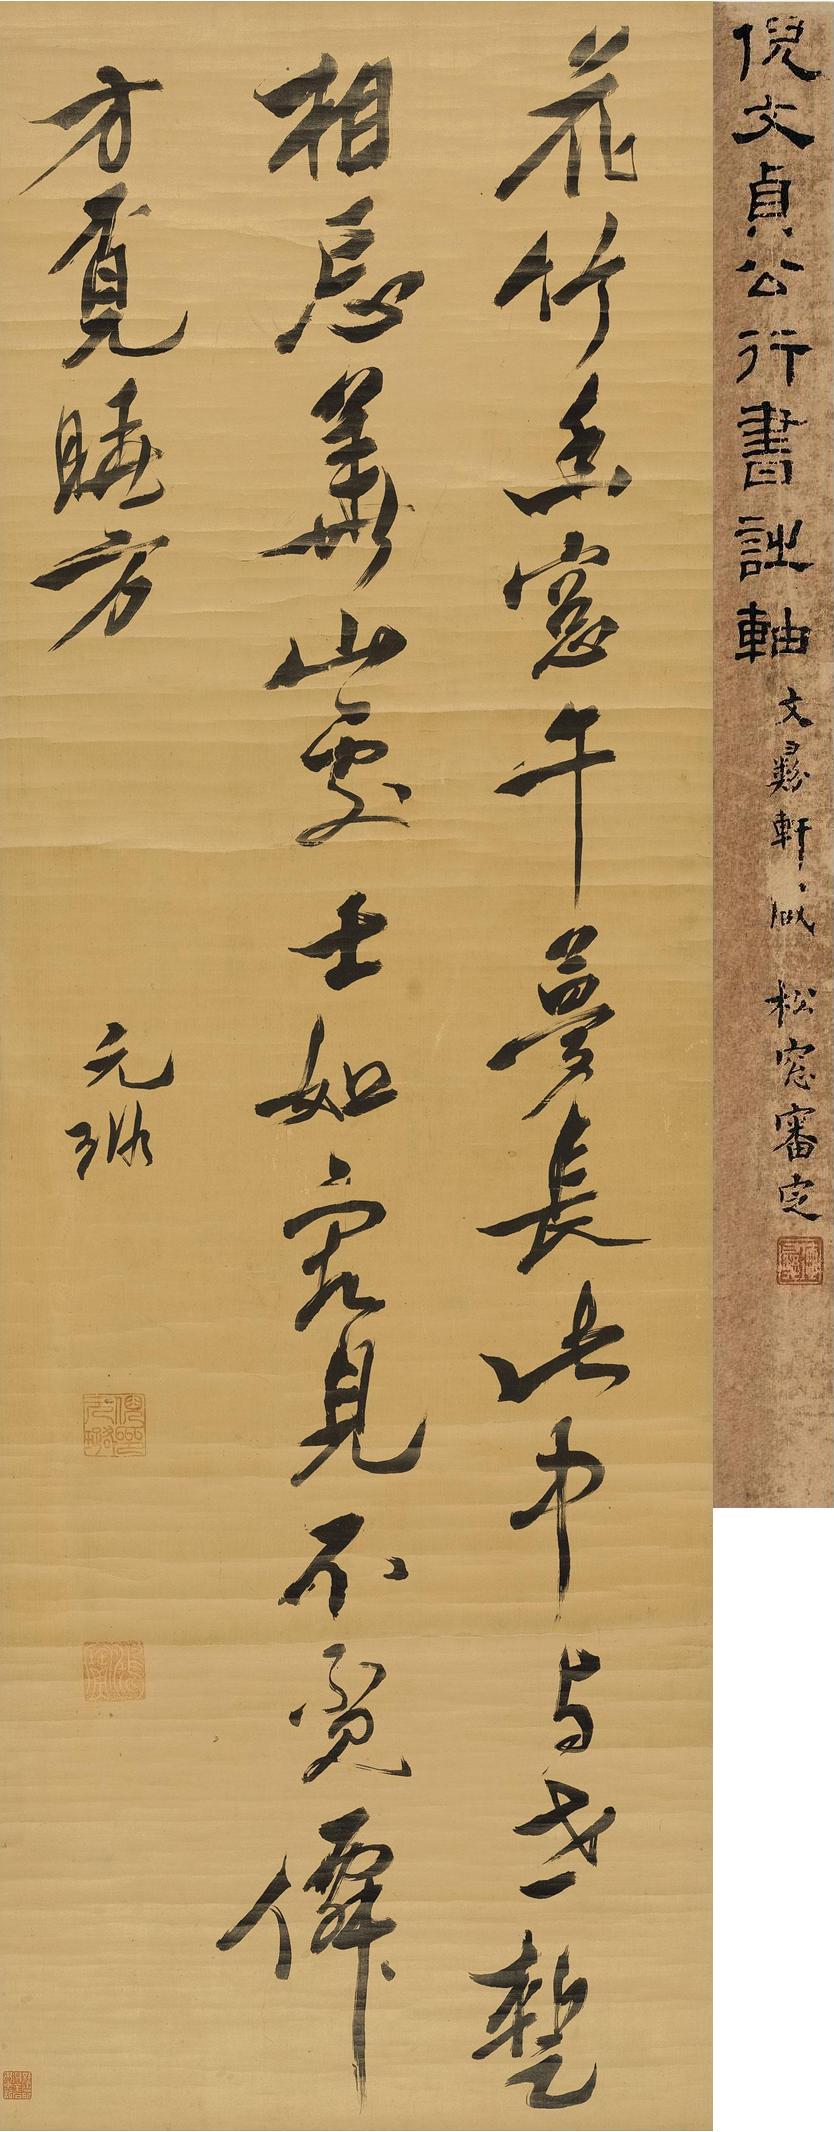 倪文貞公行書詩軸
文彝軒藏 松窓審定
花竹幽窓午夢長此中与世暫
相忘華山處士如容見不覓僊
方覓睡方
元璐